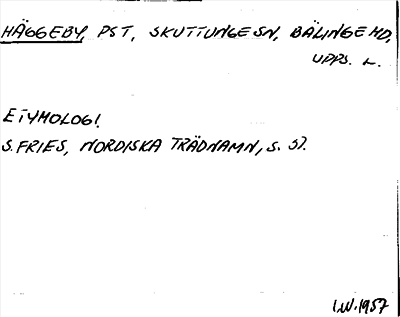 HÄGGEBY, PST, SKUTTUNGE SN, BÄLINGE HD,
UPPS. L.
ETYMOLOGI.
S. FRIES, NORDISKA TRÄDNAMN, S. 57.
I.W. 1957